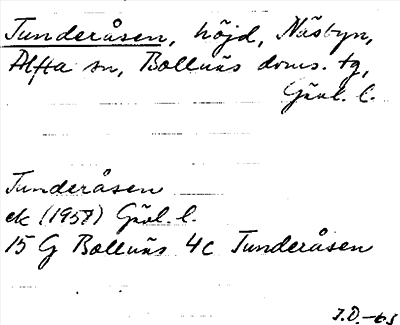 Tunderåsen, höjd, Näsbyn,
Alfta sn, Bollnäs doms. tg,
Gävl. l.
Tunderåsen
ek (1957) Gävl. l.
15 G Bollnäs 4c Tunderåsen
J.D.-65